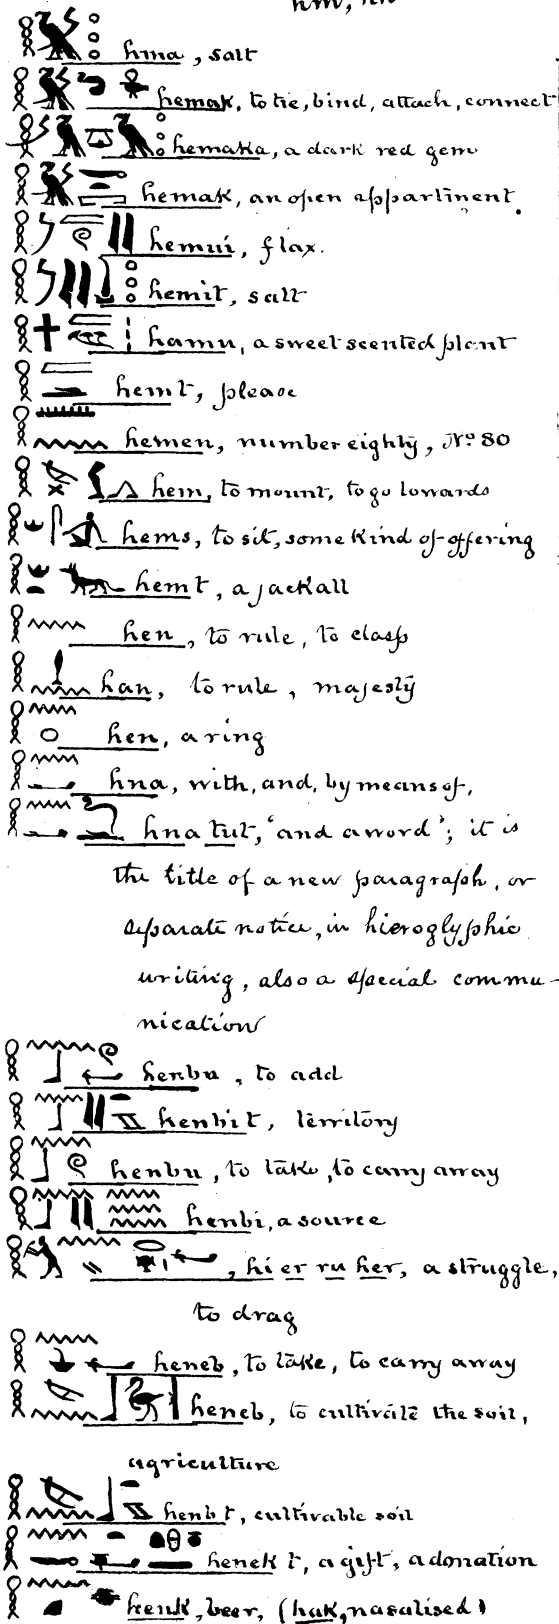 hma, salt
hemak, to tie, bind, attach, connect
hemaka, a dark red gem
hemak, an open appartment.
hemui, flax.
hemit, salt
hamu, a sweet scented plant
hemt, please
hemen, number eighty, No 80
hem, to mount, to go towards
hems, to sit, some kind of offering
hemt, a jackall
hen, to rule, to clasp
han, to rule, majesty
hen, a ring
hna, with, and, by means of,
hna tut, 'and a word'; it is
the title of a new paragraph, or
separate notice, in hieroglyphic
writing, also a special commu-
nication
henbu, to add
henbit, territory
henbu, to take, to carry away
henbi, a source
, hi er ru her, a struggle,
to drag
heneb, to take, to carry away
heneb, to cultivate the soil,
agriculture
henbt, cultivable soil
henek t, a gift, a donation
henk, beer, (hak, nasalised)